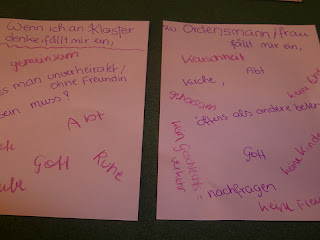 Wenn ich an Kloster
denke fällt mir ein,
gemeinsam
man unverheiratet/
ohne Freundin
sein muss?
Abt
Gott
Ruhe
zu Ordensmann/frau
fällt mir ein,
Keuschheit
Abt
Kirche,
gehorsam
öfters als andere beten
kein Geschlechts-
verkehr
Gott
keine Kinder
nachfragen
keine